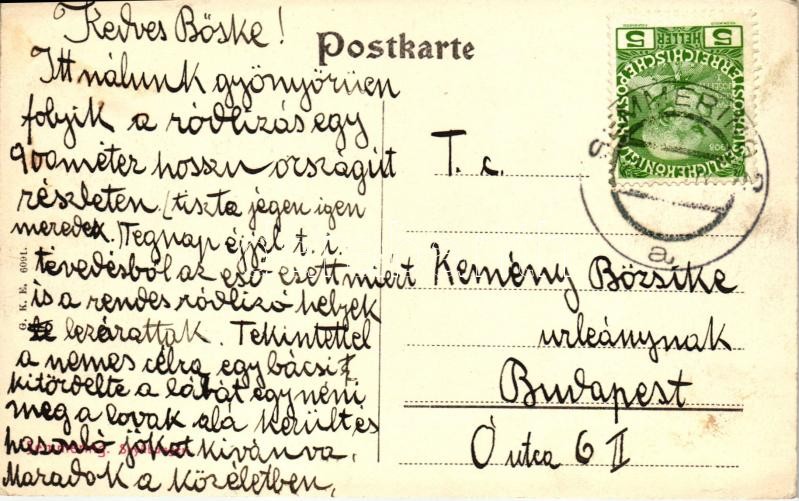 Kedves Böske!
Itt nálunk gyönyörüen
folyik a ródlizás egy
900 méter hosszu országút
részleten (tiszta jégen igen
meredek.) Tegnap éjjel t. i.
tévedésból az eső esett miért
is a rendes ródlizó helyek
lezárattak. Tekintettel
a nemes célra egy bácsi
kitördelte a lábát egy néni
meg a lovak alá került és
hasonló jókat kivánva.
Maradok a közéletben,
Postkarte
T. c.
Kemény Bözsike
urleánynak
Budapest
Ó utca 6 II
G. K. E. 6091.
Semmering.
5 HELLER 5
1908
SEMMERING 2
a